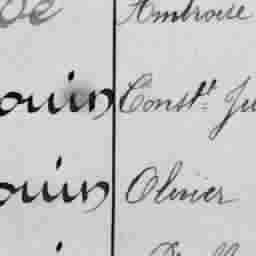 Ambroise
ouin Constt. Ju
ouin Olivier